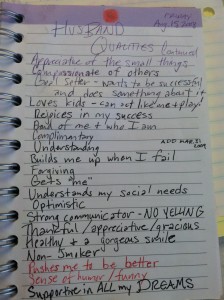 FRIDAY
Aug. 15, 2008
HUSBAND
QUALITIES Continued
Appreciative of the small things
Compassionate of others
Goal setter - wants to be successful
and does something about it
Loves kids - can act like me & play!
Rejoices in my success
Proud of me & who I am
Complimentary
Understanding
Builds me up when I fail
Forgiving
Gets "me"
Understands my social needs
Optimistic
Strong communicator - NO YELLING
Thankful / appreciative / gracious
Healthy & a gorgeous smile
Non-Smoker
Pushes me to be better
Sense of humor / funny
Supportive in ALL my DREAMS